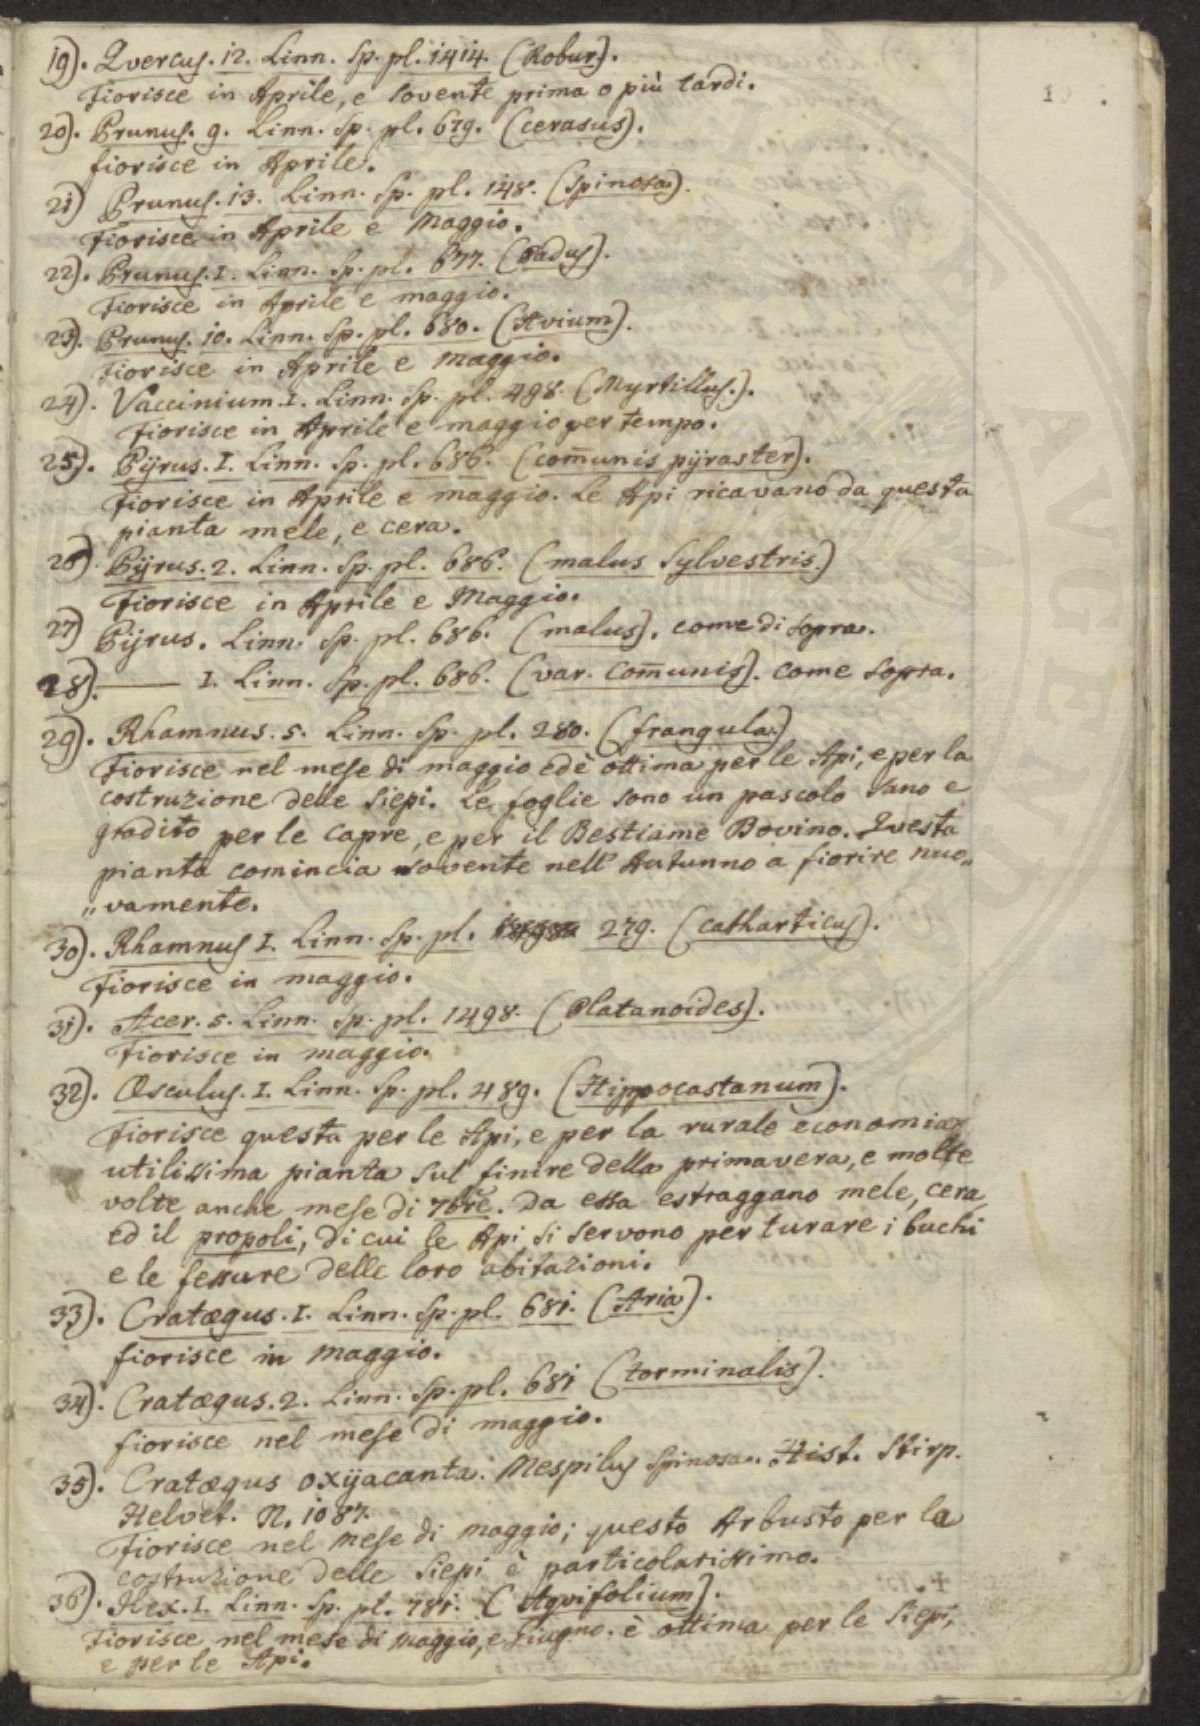 19). Qvercus. 12. Linn. Sp. pl. 1414. (Robur).
Fiorisce in Aprile, e sovente prima o più tardi.
20). Prunus. 9. Linn. Sp. pl. 679. (cerasus).
fiorisce in Aprile.
21) Prunus. 13. Linn. Sp. pl. 148. (Spinosa).
Fiorisce in Aprile e Maggio.
22). Prunus. I. Linn. Sp. pl. 677. (Padus).
Fiorisce in Aprile e maggio.
23). Prunus. 10. Linn. Sp. pl. 680. (Avium).
Fiorisce in Aprile e maggio.
24). Vaccinium. I. Linn. Sp. pl. 498. (Myrtillus.).
Fiorisce in Aprile e maggio per tempo.
25). Pÿrus. I. Linn. Sp. pl. 686. (com̅unis pÿraster).
Fiorisce in Aprile e maggio. Le Api ricavano da questa
pianta mele, e cera.
26). Pÿrus. 2. Linn. Sp. pl. 686. (malus Sylvestris.)
Fiorisce in Aprile e Maggio.
27) Pÿrus. Linn. Sp. pl. 686. (malus). come di sopra.
28). —— I. Linn. Sp. pl. 686. (var. com̅unis). come sopra.
29). Rhamnus. 5. Linn. Sp. pl. 280. (frangula.)
Fiorisce nel mese di maggio ed è ottima per le Api, e per la
costruzione delle Siepi. Le foglie sono un pascolo sano e
gradito per le Capre, e per il Bestiame Bovino. Qvesta
pianta comincia sovente nell' Autunno a fiorire nuo„
„vamente.
30). Rhamnus I. Linn. Sp. pl. 279. (catharticus).
Fiorisce in maggio.
31). Acer. 5. Linn. Sp. pl. 1498. (Platanoides).
Fiorisce in maggio.
32). Œsculus. I. Linn. Sp. pl. 489. (Hippocastanum).
Fiorisce questa per le Api, e per la rurale economia
utilissima pianta sul finire della primavera, e molte
volte anche mese di 7bre. Da essa estraggano mele, cera
ed il propoli, di cui le Api si servono per turare i buchi
e le fessure delle loro abitazioni.
33). Cratægus. I. Linn. Sp. pl. 681. (Aria).
fiorisce in maggio.
34). Cratægus. 2. Linn. Sp. pl. 681 (torminalis).
fiorisce nel mese di maggio.
35). Cratægus oxÿacanta. Mespilus Spinosa. Hist. Stirp.
Helvet. N. 1087.
Fiorisce nel mese di maggio; questo Arbusto per la
costruzione delle Siepi è particolarissimo.
36). Ilex. I. Linn. Sp. pl. 781. (Aqvifolium).
Fiorisce nel mese di maggio, e Giugno. è ottima per le Siepi,
e per le Api.